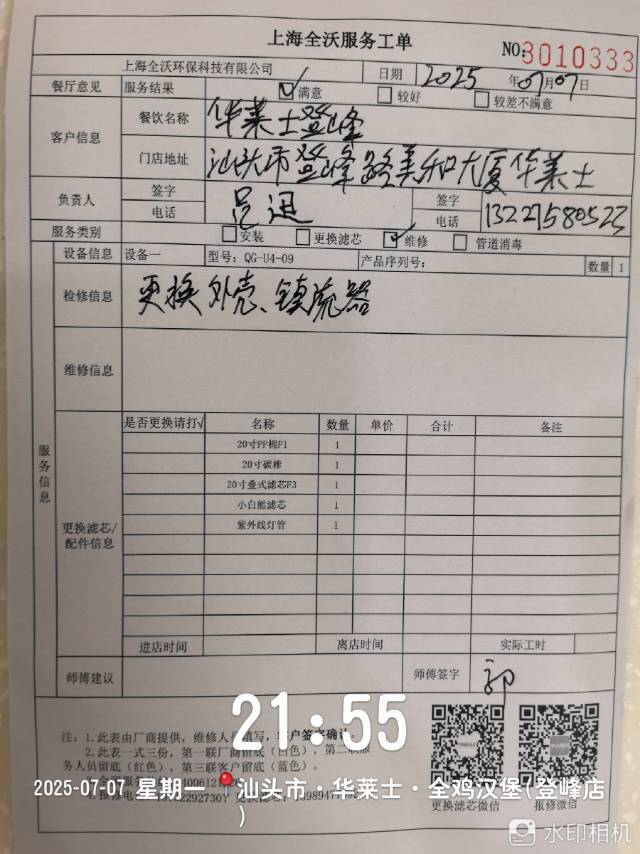 上海全沃服务工单
NO: 3010333
上海全沃环保科技有限公司 日期 2025 年 07 月 07 日
餐厅意见 服务结果 ☑满意 □较好 □较差不满意
客户信息 餐饮名称 华莱士登峰
门店地址 汕头市登峰路美和大厦华莱士
负责人 签字 签字
电话 电话
服务类别 □安装 □更换滤芯 ☑维修 □管道消毒
设备信息 设备一 型号: QG-U4-09 产品序列号: 数量 1
检修信息 更换外壳、镇流器
维修信息
服务信息
更换滤芯/配件信息
是否更换请打√ 名称 数量 单价 合计 备注
20寸PP棉F1 1
20寸碳棒 1
20寸叠式滤芯F3 1
小白熊滤芯 1
紫外线灯管 1
进店时间 离店时间 实际工时
师傅建议 师傅签字 郭
注: 1.此表由厂商提供，维修人员填写，客户签字确认。
2.此表一式三份，第一联厂商留底（白色），第二联服
务人员留底（红色），第三联客户留底（蓝色）。
更换滤芯微信 报修微信
21:55
2025-07-07 星期一 汕头市·华莱士·全鸡汉堡(登峰店
)
水印相机